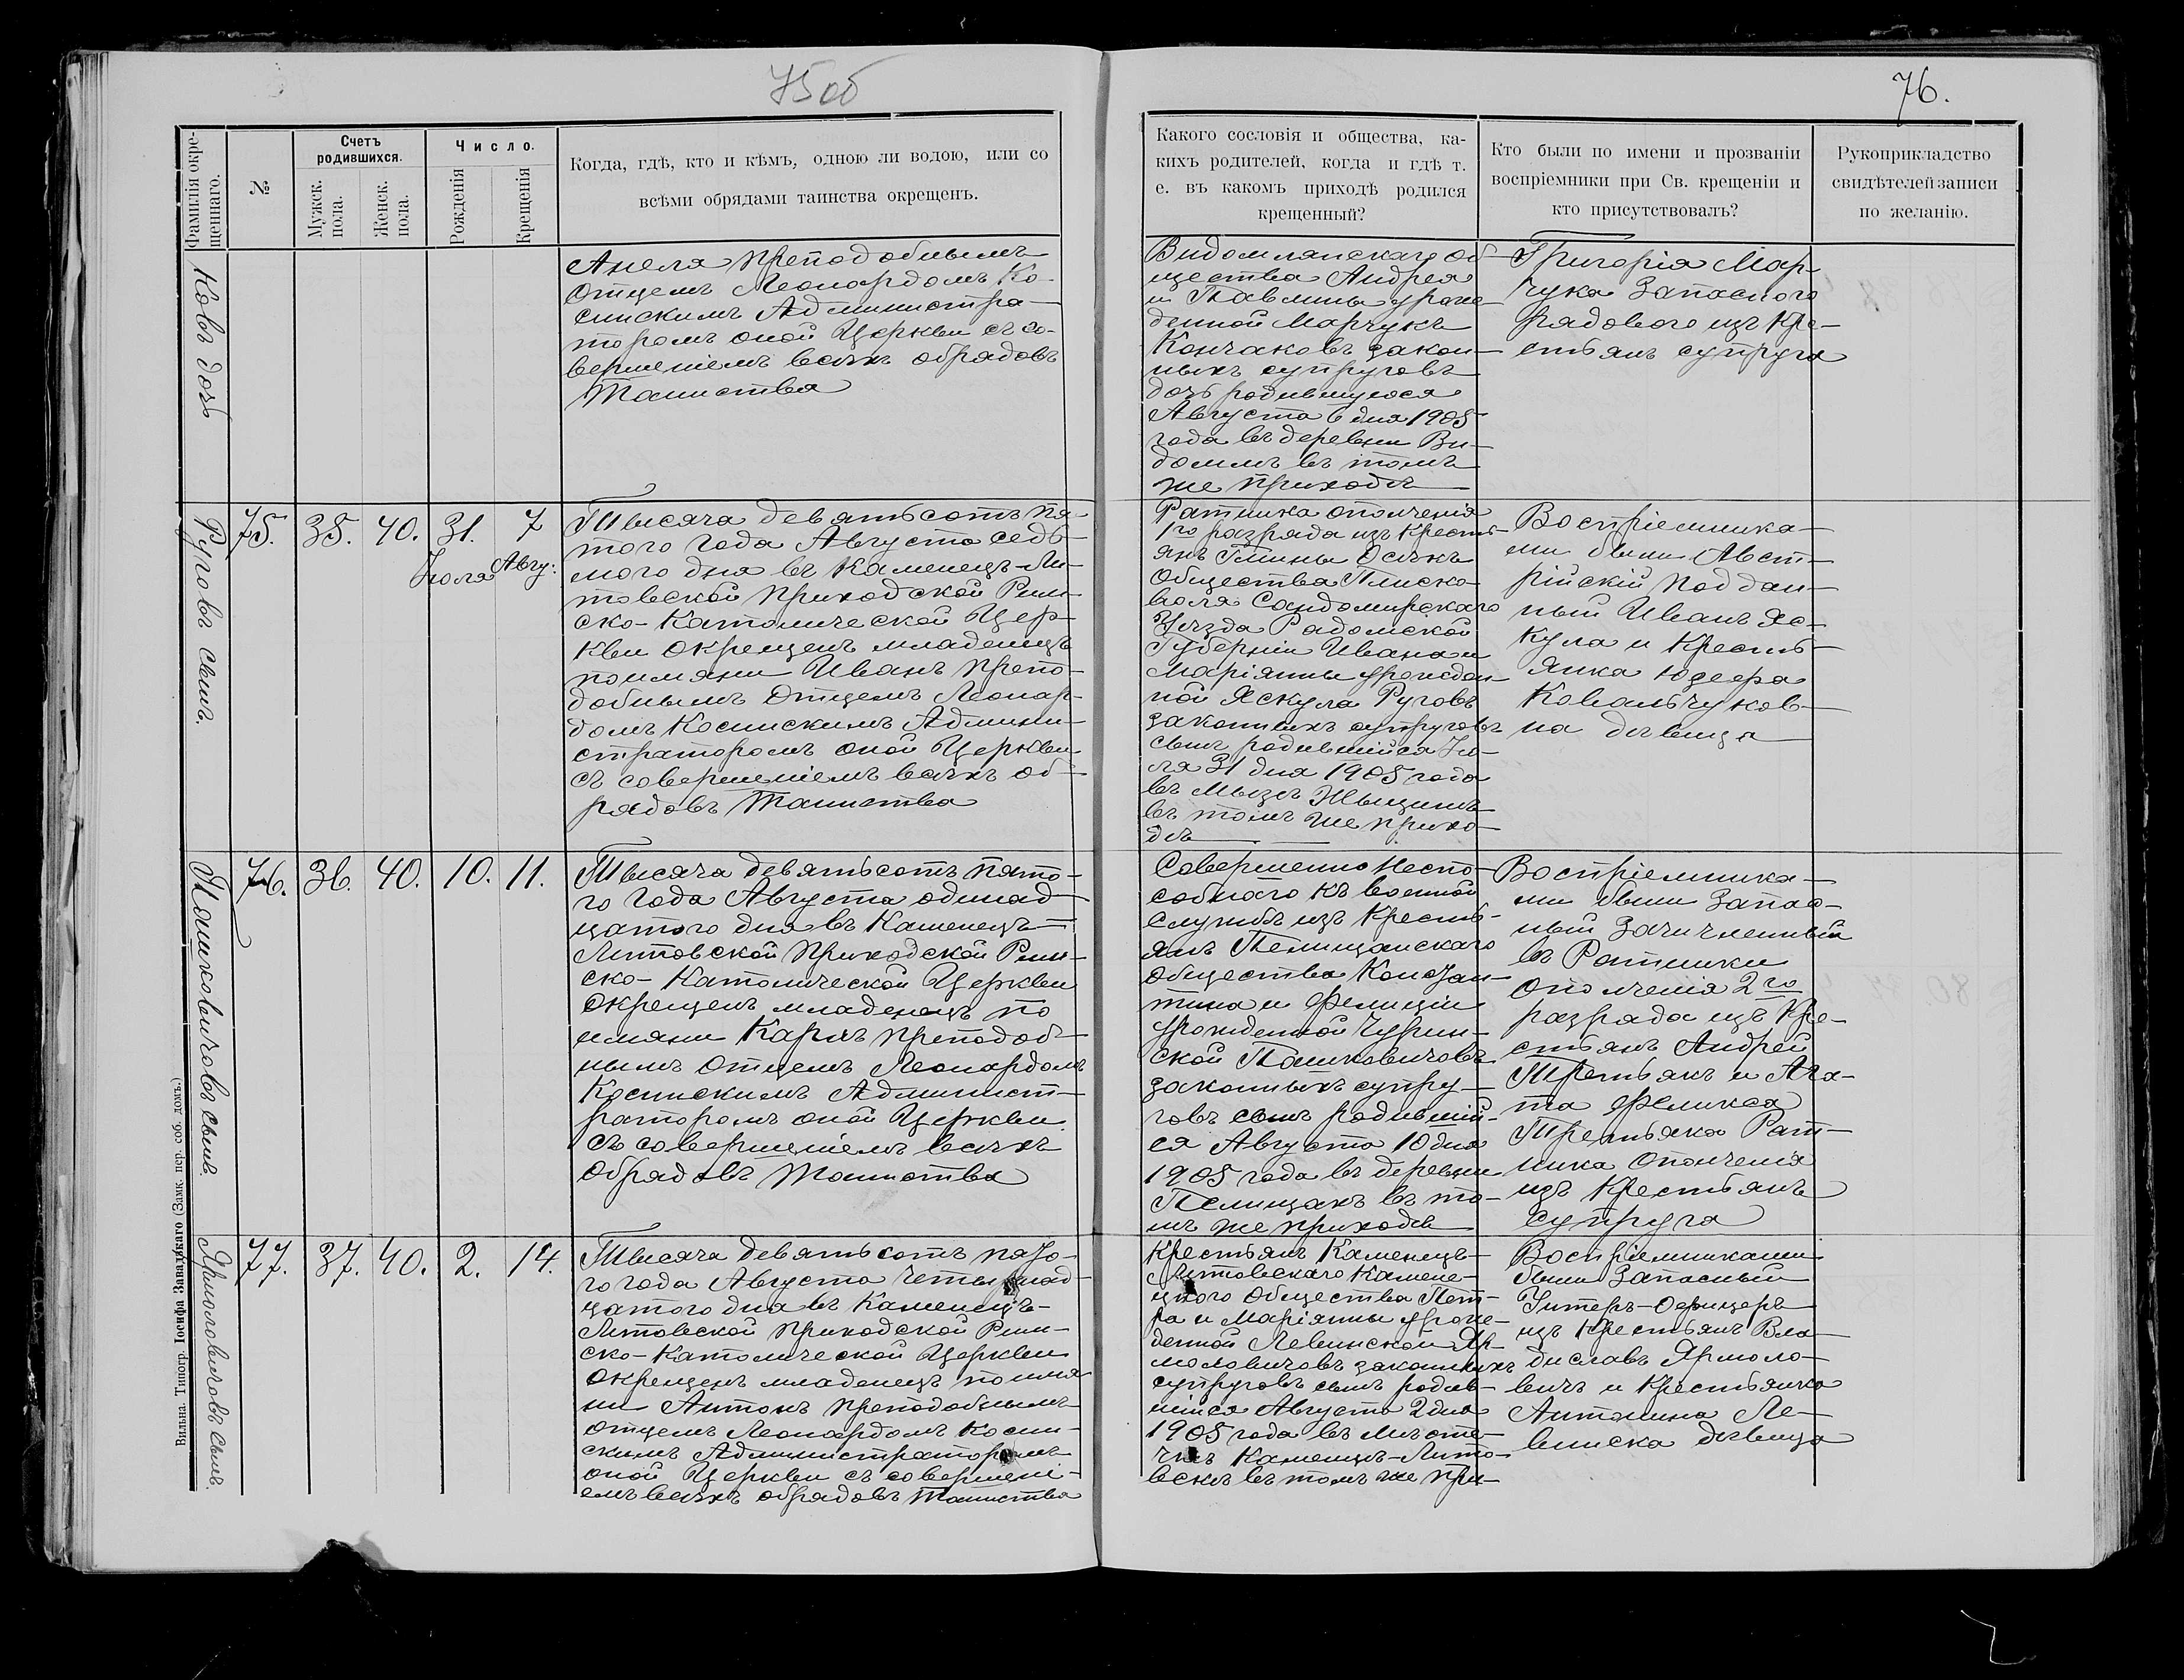 75 об
76.
Фамилія окре-
щеннаго.
№
Счетъ
родившихся.
Мужск.
пола.
Женск.
пола.
Число.
Рожденія
Крещенія
Когда, гдѣ, кто и кѣмъ, одною ли водою, или со
всѣми обрядами таинства окрещенъ.
Какого сословія и общества, ка-
кихъ родителей, когда и гдѣ т.
е. въ какомъ приходѣ родился
крещенный?
Кто были по имени и прозванію
воспріемники при Св. крещеніи и
кто присутствовалъ?
Рукоприкладство
свидѣтелей записи
по желанію.
ковъ дочь
Анеля Преподобнымъ
Отцемъ Леонардомъ Ко-
синскимъ Администра-
торомъ оной Церкви съ со-
вершеніемъ всѣхъ обрядовъ
Таинства
Видомлянскаго Об-
щества Андрея
и Павлины урож-
денной Марчукъ
Кончаковъ закон-
ныхъ супруговъ
дочь родившуюся
Августа 6 дня 1905
года въ деревни Ви-
домлѣ въ томъ
же приходѣ
Григорія Мар-
чука Запаснаго
рядового изъ Кре-
стьянъ супруга
Руговъ сынъ.
75. 35. 40. 31. 7
Іюля Авгу:
Тысяча девятьсотъ пя-
того года Августа седь-
мого дня въ Каменецъ-Ли-
товской Приходской Рим-
ско-Католической Цер-
кви окрещенъ младенецъ
поимяни Иванъ Препо-
добнымъ Отцемъ Леонар-
домъ Косинскимъ Админи-
страторомъ оной Церкви
съ совершеніемъ всѣхъ об-
рядовъ Таинства
Ратника ополченія
1го разряда изъ Кресть-
янъ Гмины Осѣкъ
Общества Плиско-
воля Сандомирскаго
Уѣзда Радомской
Губерніи Ивана и
Маріянны урожден-
ной Яскула Руговъ
законныхъ супруговъ
сынъ родившійся Ію-
ля 31 дня 1905 года
въ Мызѣ
въ томъ же прихо-
дѣ
Воспріемника-
ми были Авст-
рійскій поддан-
ный Иванъ Яс-
кула и Кресть-
янка Юзефа
Ковальчуков-
на дѣвица
Пашковичовъ сынъ.
76. 36. 40. 10. 11.
Тысяча девятьсотъ пято-
го года Августа одинад-
цатого дня въ Каменецъ-
Литовской Приходской Рим-
ско-Католической Церкви
окрещенъ младенецъ по
имяни Карлъ Преподоб-
нымъ Отцемъ Леонардомъ
Косинскимъ Админист-
раторомъ оной Церкви
съ совершеніемъ всѣхъ
обрядовъ Таинства
Совершенно неспо-
собнаго къ военной
службѣ изъ Кресть-
янъ Пелищанскаго
Общества Констан-
тина и Фелиціи
урожденной Чурин-
ской Пашковичовъ
законныхъ супру-
говъ сынъ родившій-
ся Августа 10 дня
1905 года въ деревни
Пелищахъ въ то-
мъ же приходѣ
Воспріемника-
ми были Запас-
ный Зачисленный
въ Ратники
ополченія 2го
разряда изъ Кре-
стьянъ Андрей
Третьякъ и Ага-
та Феликса
Третьяка Рат-
ника ополченія
изъ Крестьянъ
супруга
Ярмоловичовъ сынъ.
77. 37. 40. 2. 14.
Тысяча девятьсотъ пято-
го года Августа четырнад-
цатого дня въ Каменецъ-
Литовской Приходской Рим-
ско-Католической Церкви
окрещенъ младенецъ по имя-
ни Антонъ Преподобнымъ
Отцемъ Леонардомъ Косин-
скимъ Администраторомъ
оной Церкви съ совершені-
емъ всѣхъ обрядовъ Таинства
Крестьянъ Каменецъ-
Литовскаго Камене-
цкого Общества Пет-
ра и Маріянны урож-
денной Левинской Яр-
моловичовъ законныхъ
супруговъ сынъ родив-
шійся Августа 2 дня
1905 года въ Мѣсте-
чкѣ Каменцѣ-Лито-
вскѣ въ томъ же при-
Воспріемниками
были Запасный
Унтеръ-Офицеръ
изъ Крестьянъ Вла-
диславъ Ярмоло-
вичъ и Крестьянка
Антонина Ле-
винска дѣвица
Вильна. Типогр. Іосифа Завадзкаго (Замк. пер. соб. домъ.)